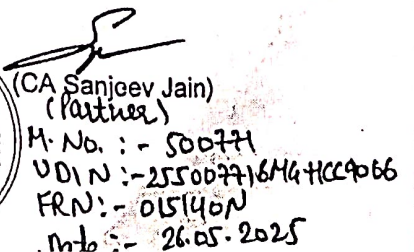 (CA Sanjeev Jain)
(Partner)
M. No. :- 500771
UDIN :- 25500771BMGHCC9066
FRN :- 015140N
Date :- 26.05.2025